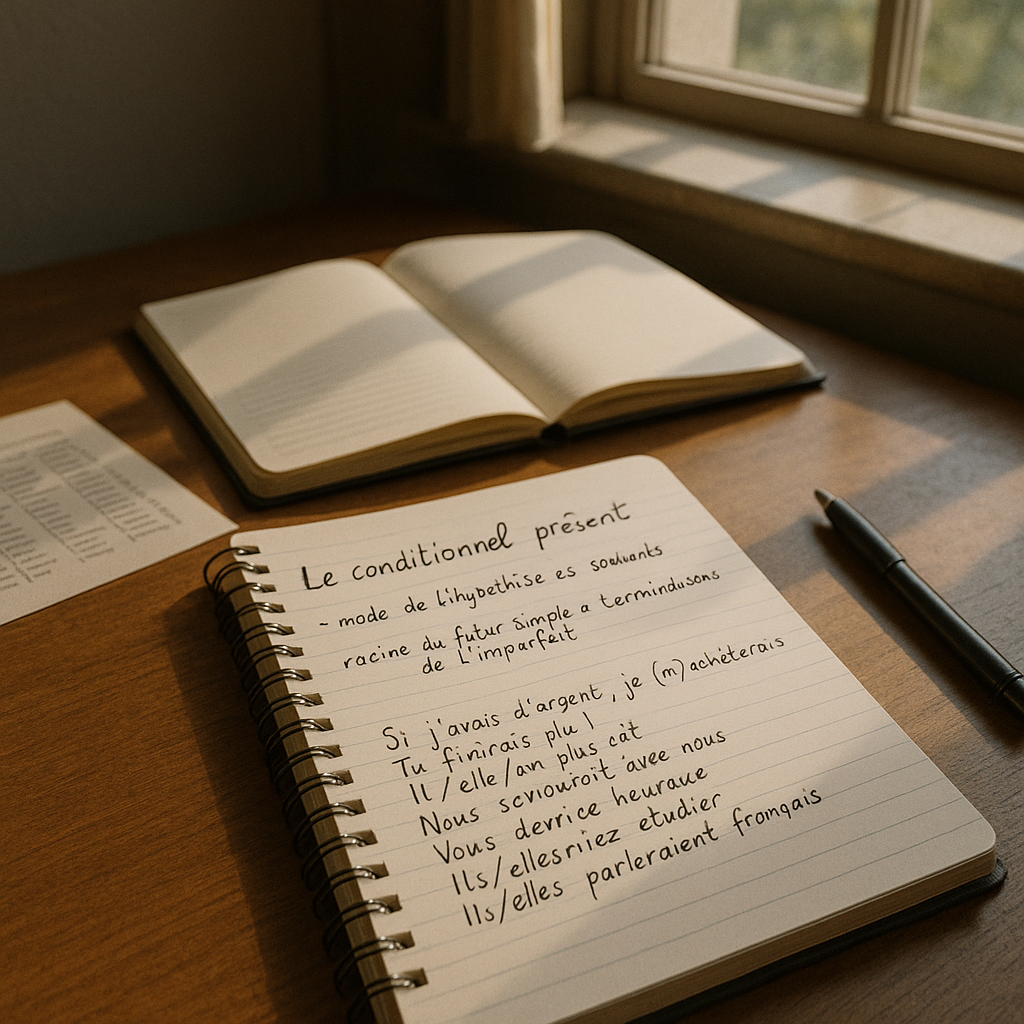 Le conditionnel présent
- mode de l'ihypethise es souluants
racine du futur simple a termindusons
de L'imparfeit
Si j'avais d'argent, je (m)achèterais
Tu finirais plu!
Il/elle/an plus càt
Nous scviouroit avee nous
Vous devrice heuraue
Ils/ellesriiez etudier
Ils/elles parleraient fromçais